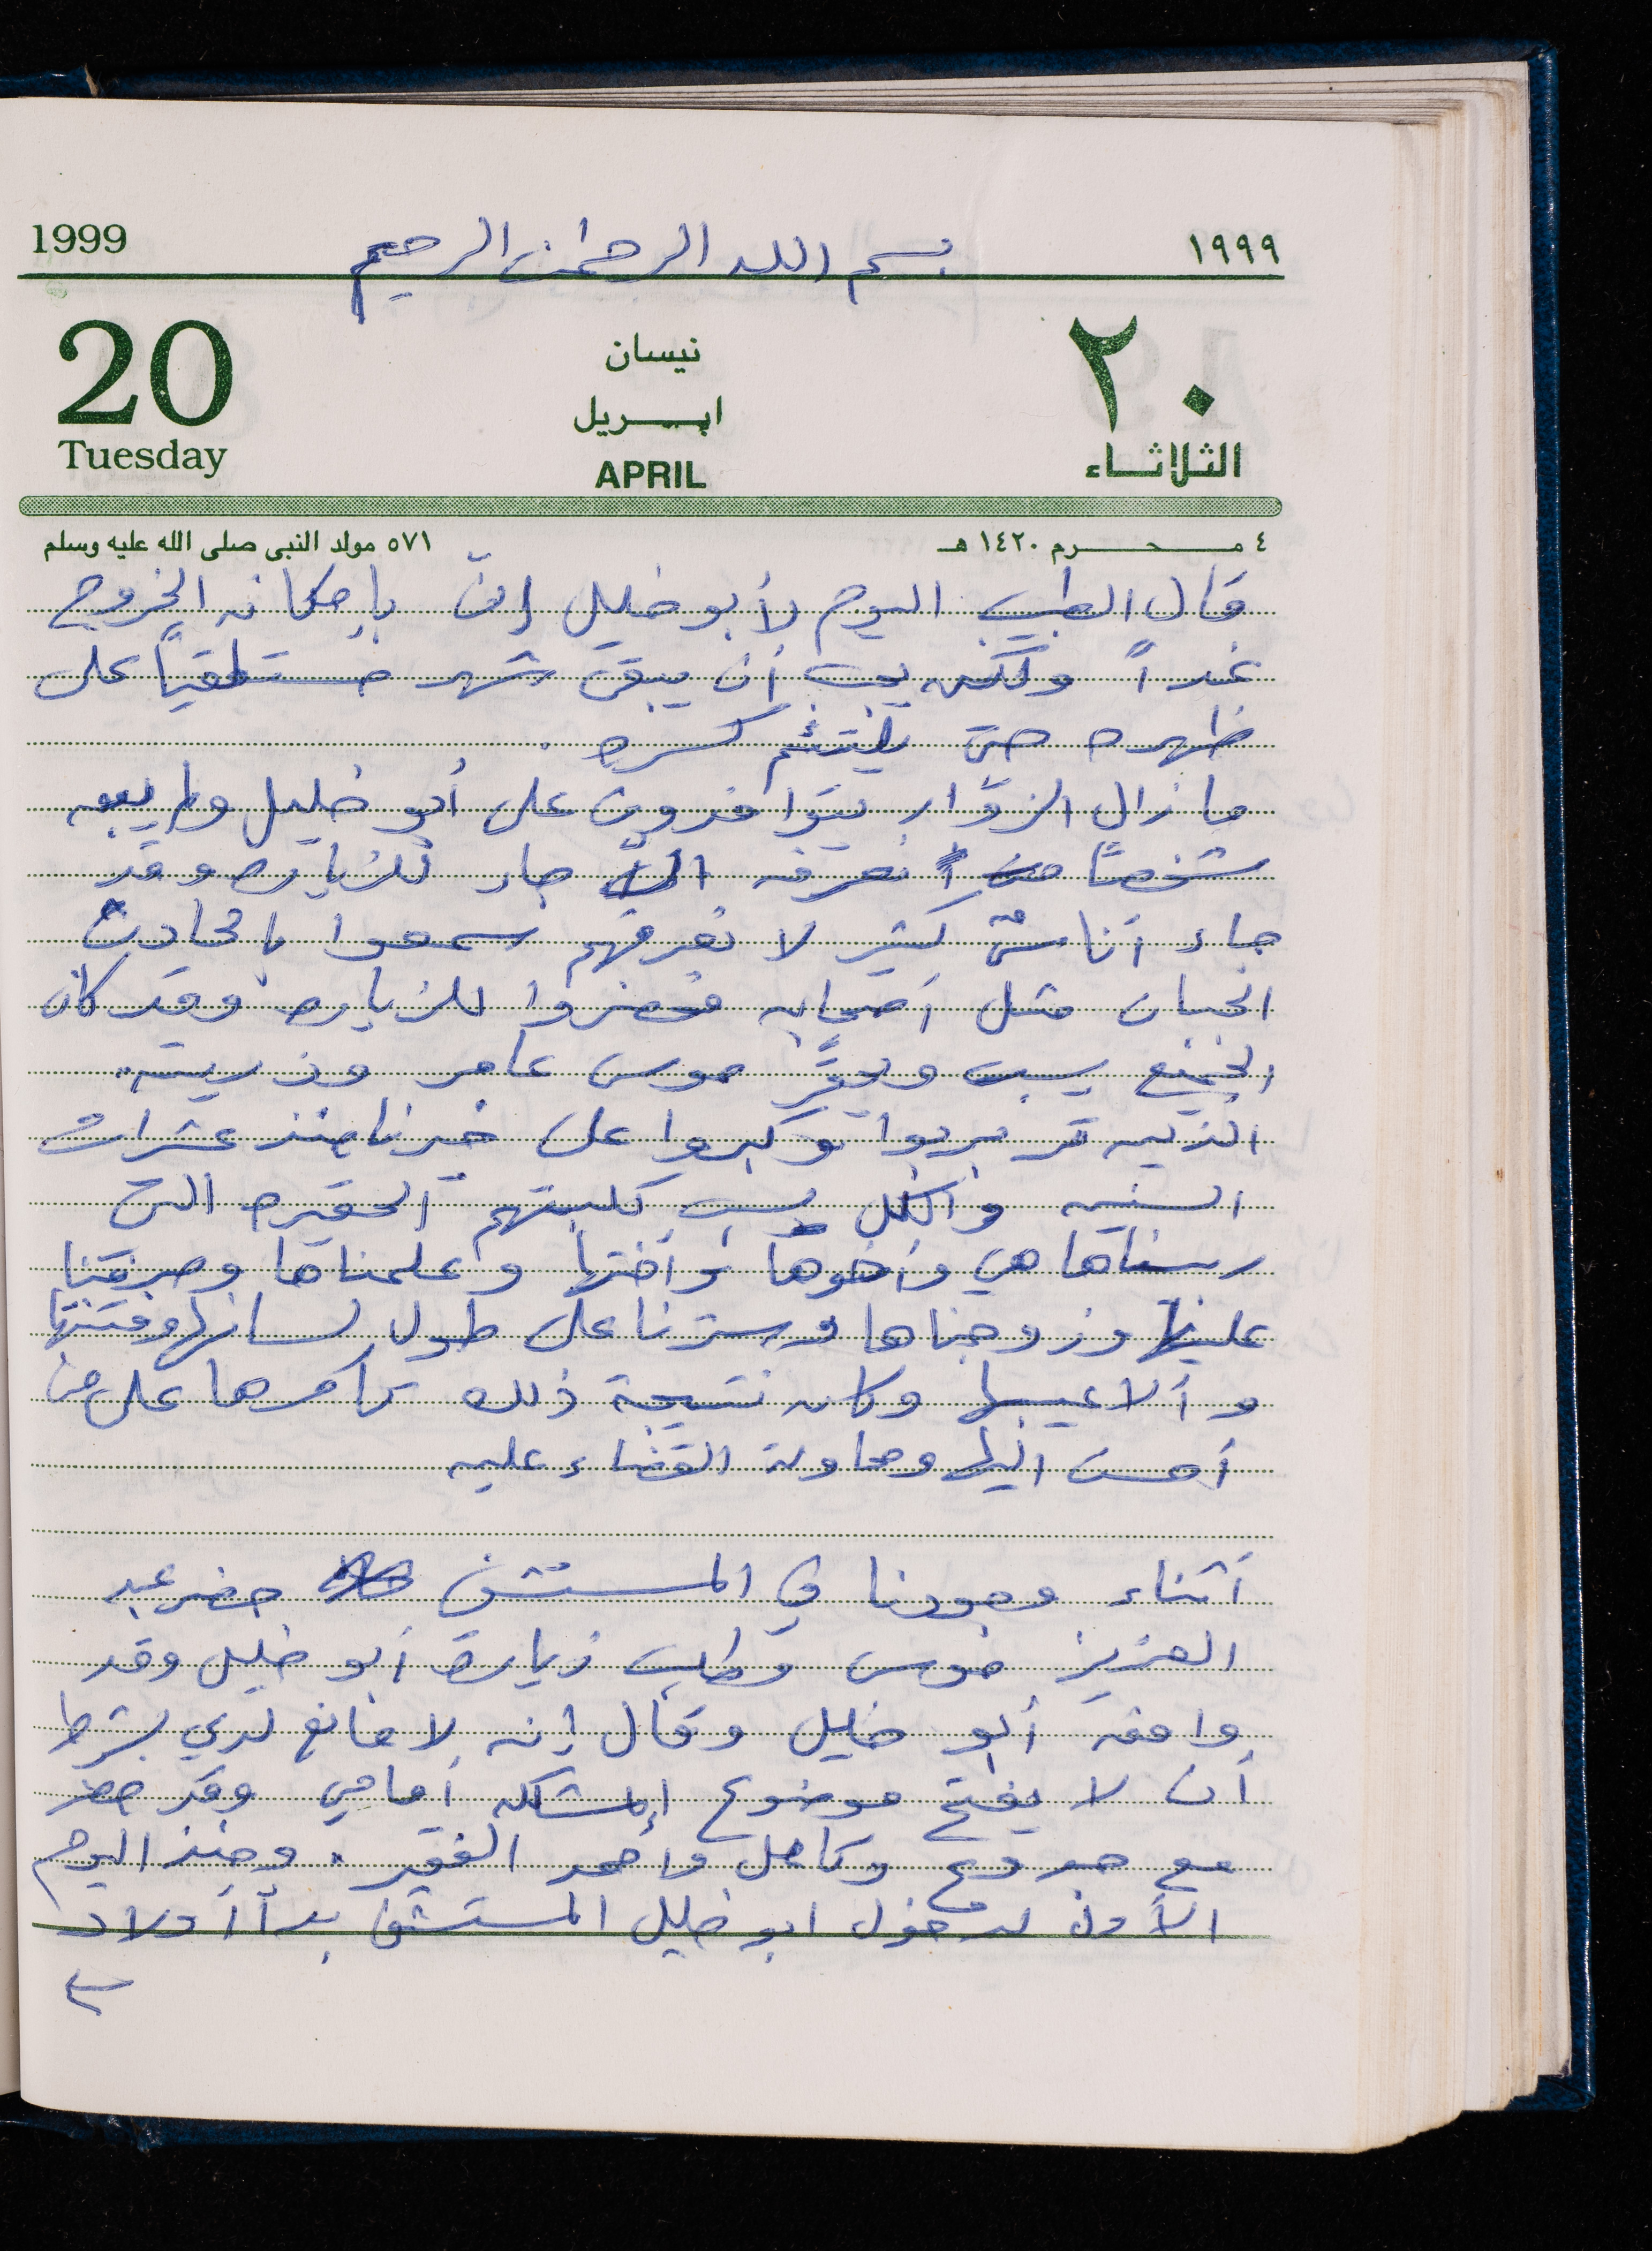 1999 بسم الله الرحمن الرحيم ١٩٩٩
20 نيسان ٢٠
ابـــريل
Tuesday APRIL الثلاثـاء
٤ مـــحـــرم ١٤٢٠ هـ ٥٧١ مولد النبى صلى الله عليه وسلم
قال الطبيب اليوم لأبو خليل إنّ بإمكانه الخروج
غداً ولكنه يجب أن يبقى شهر مستلقياً على
ظهره حتى يلتئم كسره .
ما زال الزوّار يتوافدون على أبو خليل ولم يبق
شخصاً نعرفه الاّ جاء للزيارة وقد
جاء أناسٌ كثير لا نعرفهم سمعوا بالحادث
الجبان مثل أصحابه فحضروا للزيارة وقد كان
الجميع يسب ويحقّر موسى عامر وذريته
الذين قد تربوا وكبروا على خيرنا منذ عشرات
السنين والكل يسب كلبتهم الحقيرة التي
ربيناها هي وأخوها وأختها وعلمناها وصرفنا
عليها وزوجناها وسترنا على طول لسانها وفتنتها
وألاعيبها وكان نتيجة ذلك تآمرها على من
أحسن اليها ومحاولة القضاء عليه
أثناء وجودنا في المستشفى حضر عبد
العزيز موسى وطلب زيارة أبو خليل وقد
وافق أبو خليل وقال إنه لا مانع لدي بشرط
أن لا يفتح موضوع المشكلة أمامي وقد حضر
مع جدوع وكامل وأحمد الفقير . ومنذ اليوم
الأول لدخول ابو خليل المستشفى بدأ أولاد